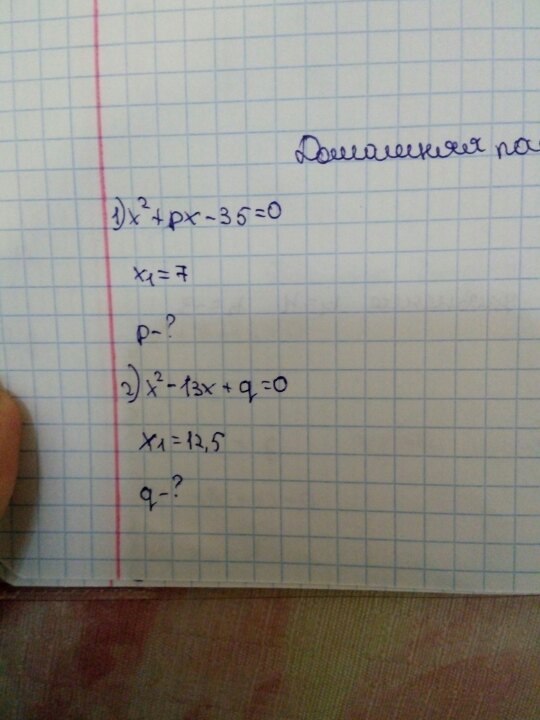 Домашняя
1) x²+px-35=0
x₁=7
p-?
2) x²-13x+q=0
x₁=12,5
q-?